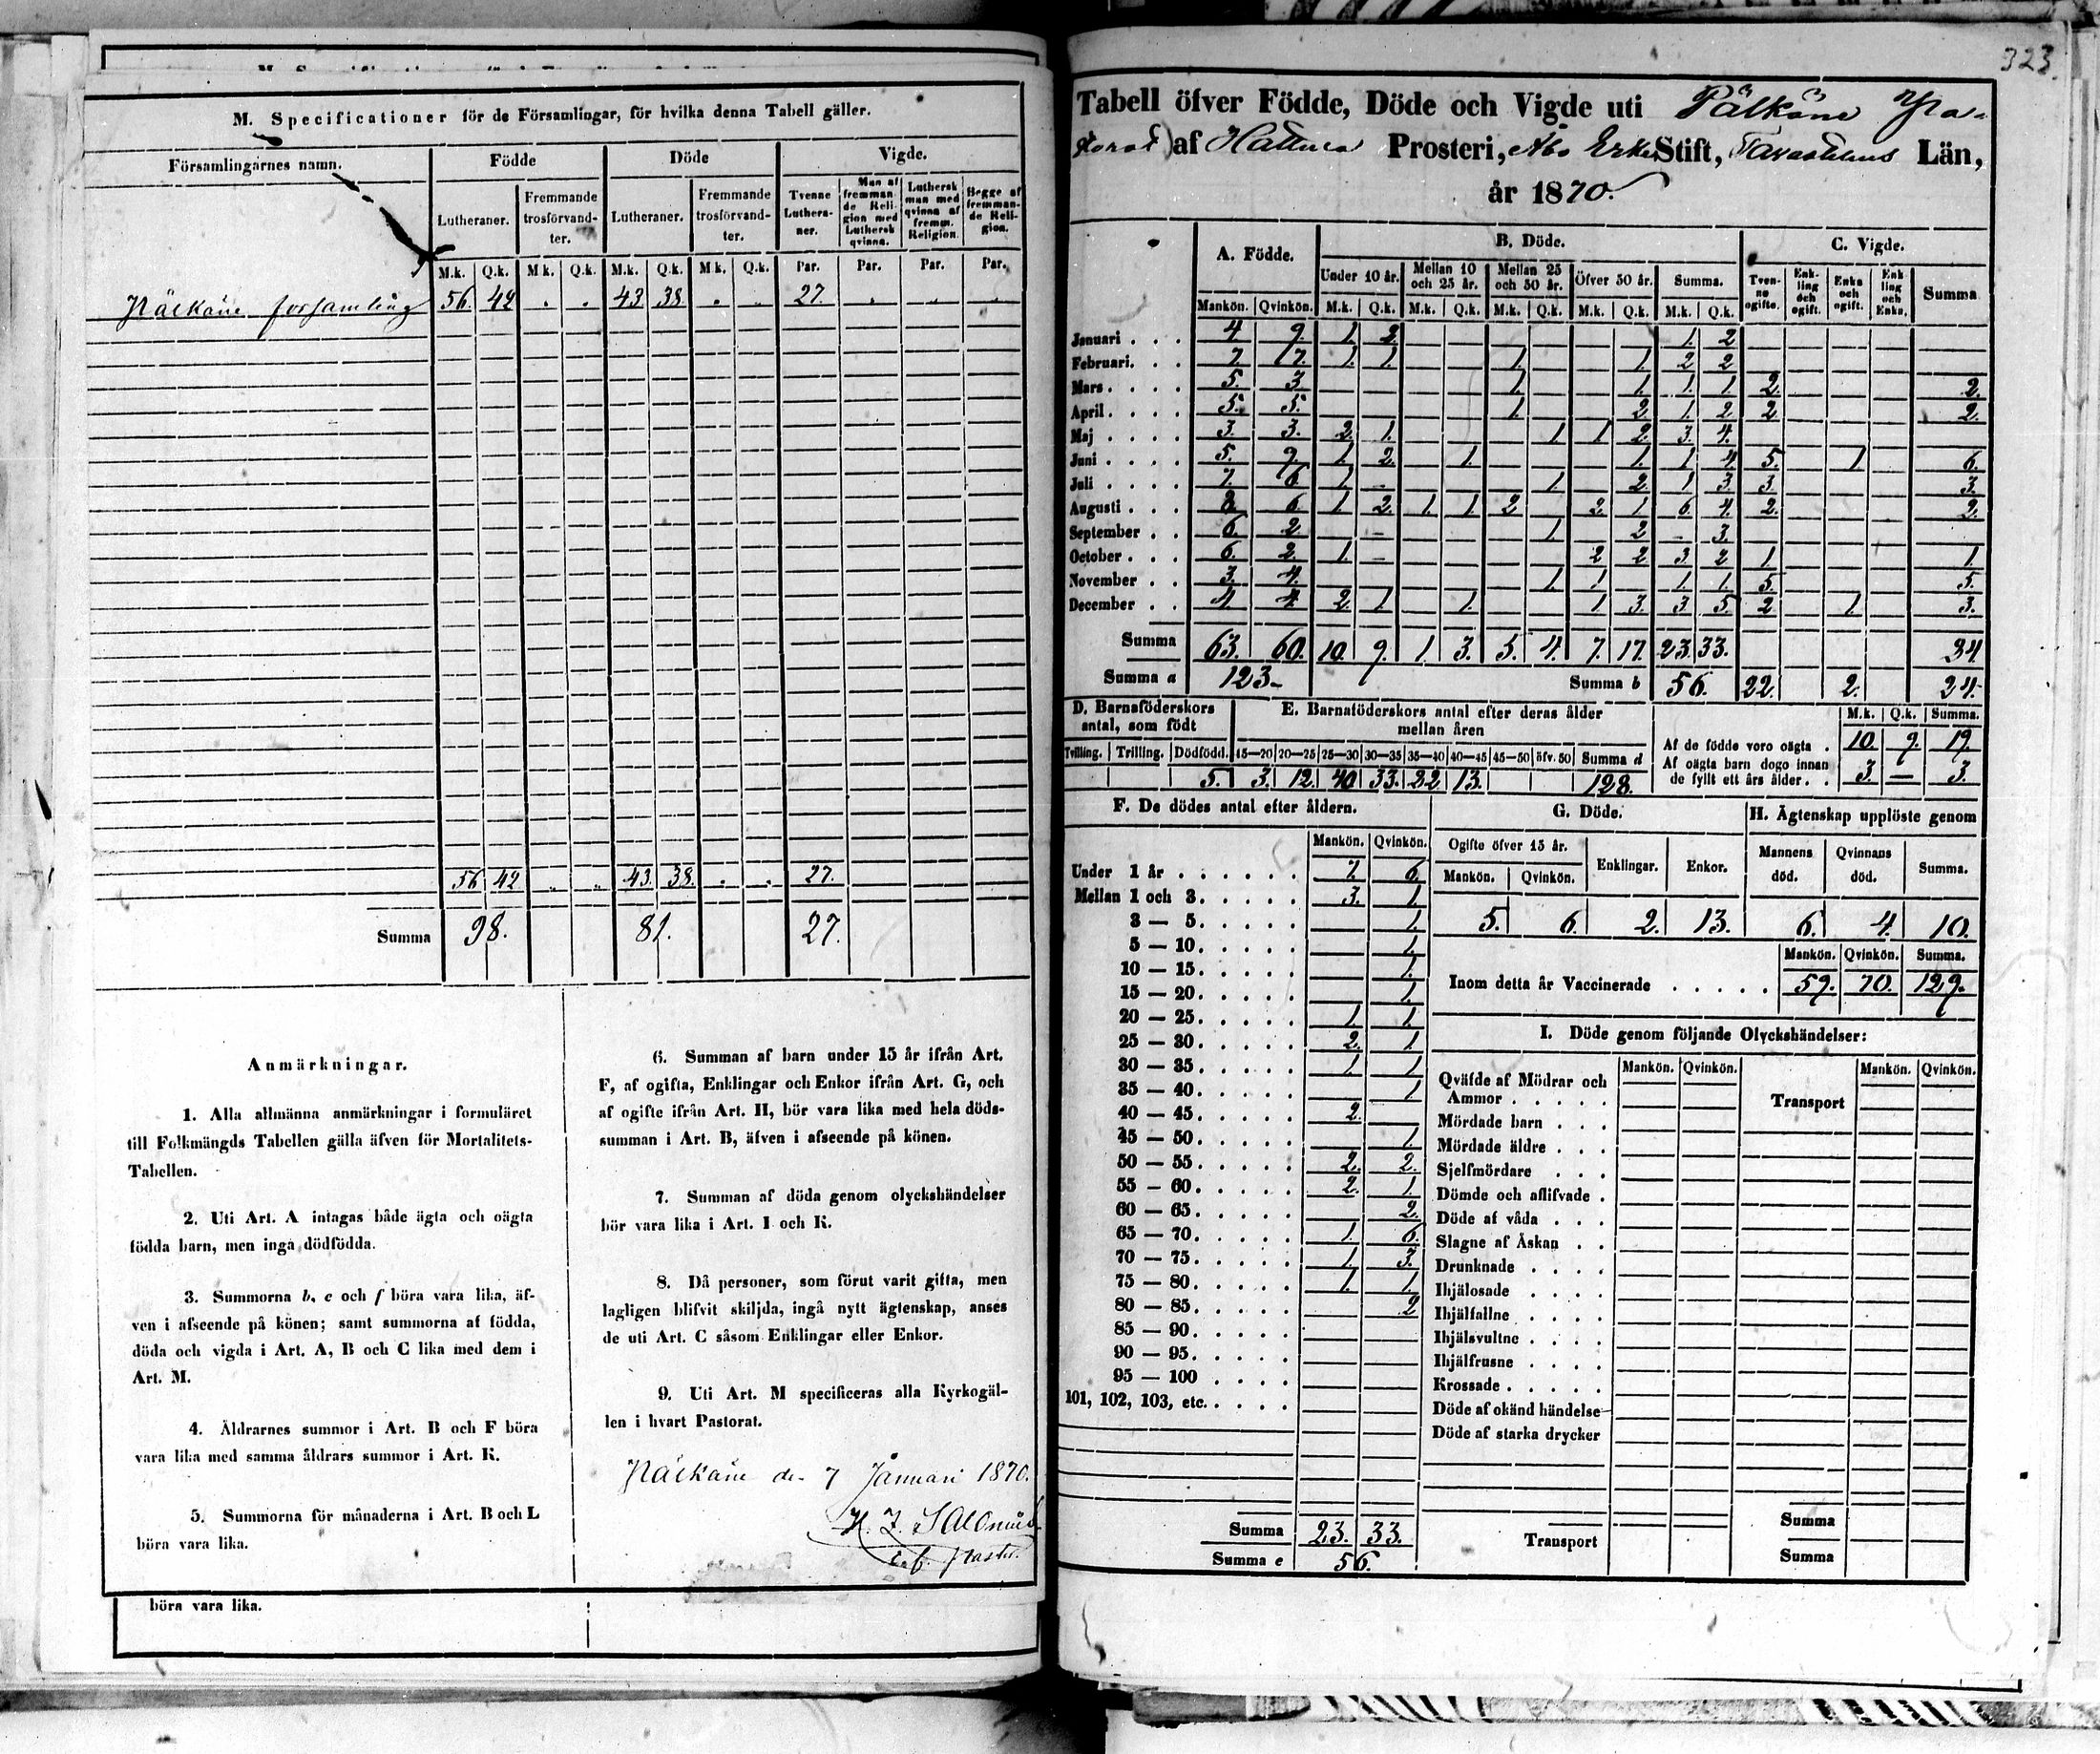 M. Specificationer för de Församlingar, för hvilka denna Tabell gäller.
Församlingarnes namn. Födde Döde Vigde.
Lutheraner. Fremmande trosförvandter. Lutheraner. Fremmande trosförvandter. Tvenne Lutheraner. Man af fremmande Religion med Luthersk qvinna. Luthersk man med qvinna af fremm. Religion. Begge af fremmande Religion.
M.k. Q.k. M.k. Q.k. M.k. Q.k. M.k. Q.k. Par. Par. Par. Par.
församling 56. 42 . . 43 38 . . 27. . . .
56 42 . . 43. 38. . . 27.
Summa 98. 81. 27.
Anmärkningar.
1. Alla allmänna anmärkningar i formuläret
till Folkmängds Tabellen gälla äfven för Mortalitets-
Tabellen.
2. Uti Art. A intagas både ägta och oägta
födda barn, men inga dödfödda.
3. Summorna b, e och f böra vara lika, äf-
ven i afseende på könen; samt summorna af födda,
döda och vigda i Art. A, B och C lika med dem i
Art. M.
4. Åldrarnes summor i Art. B och F böra
vara lika med samma åldrars summor i Art. K.
5. Summorna för månaderna i Art. B och L
böra vara lika.
6. Summan af barn under 15 år ifrån Art.
F, af ogifta, Enklingar och Enkor ifrån Art. G, och
af ogifte ifrån Art. H, bör vara lika med hela döds-
summan i Art. B, äfven i afseende på könen.
7. Summan af döda genom olyckshändelser
bör vara lika i Art. I och K.
8. Då personer, som förut varit gifta, men
lagligen blifvit skiljda, ingå nytt ägtenskap, anses
de uti Art. C såsom Enklingar eller Enkor.
9. Uti Art. M specificeras alla Kyrkogäl-
len i hvart Pastorat.
7 Januari 1870.
böra vara lika.
323.
Tabell öfver Födde, Döde och Vigde uti Pälkäne Pa-
storat af Prosteri, Åbo Erke Stift, Tavastehus Län,
år 1870.
A. Födde. B. Döde. C. Vigde.
Under 10 år. Mellan 10 och 25 år. Mellan 25 och 50 år. Öfver 50 år. Summa. Tvenne ogifte. Enkling och ogift. Enka och ogift. Enkling och Enka. Summa
Mankön. Qvinkön. M.k. Q.k. M.k. Q.k. M.k. Q.k. M.k. Q.k. M.k. Q.k.
Januari . . . 4. 9. 1. 2. 1. 2
Februari. . . 7. 7. 1. 1. 1. 1. 2 2
Mars . . . . 5. 3 1. 1. 1. 1. 2. 2.
April . . . . 5. 5. 1. 2. 1. 2 2 2.
Maj . . . . 3. 3. 2. 1. 1 1 2. 3. 4.
Juni . . . . 5. 9. 1. 2. 1. 1. 1 4 5. 1 6.
Juli . . . . 7. 6. 1. 1. 2. 1 3 3. 3.
Augusti . . . 8. 6. 1 2. 1 1 2 2. 1 6 4. 2. 2.
September . . 6. 2. 1. 2 - 3.
October . . . 6. 2. 1. 2 2 3 2 1 1.
November . . 3. 4. 1 1. 1. 1. 5. 5.
December . . 4 4 2. 1. 1. 1 3. 3 5. 2 1. 3.
Summa 63. 60. 10. 9. 1. 3. 5. 4. 7. 17. 23. 33. 24.
Summa a 123. Summa b 56. 22. 2. 24.
D. Barnaföderskors antal, som födt
E. Barnaföderskors antal efter deras ålder mellan åren
Tvilling. Trilling. Dödfödd. 15—20 20—25 25—30 30—35 35—40 40—45 45—50 öfv. 50 Summa d
5. 3. 12. 40 33. 22. 13. 128.
M.k. Q.k. Summa.
Af de födde voro oägta . 10. 9. 19.
Af oägta barn dogo innan
de fyllt ett års ålder . . 3. — 3.
F. De dödes antal efter åldern.
Mankön. Qvinkön.
Under 1 år . . . . . . 7. 6.
Mellan 1 och 3. . . . . 3. 1
3 — 5. . . . . 1.
5 — 10. . . . . 1.
10 — 15. . . . . 1.
15 — 20. . . . . 1.
20 — 25. . . . . 1. 1.
25 — 30. . . . . 2. 1.
30 — 35. . . . . 1. 1
35 — 40. . . . . 1
40 — 45. . . . . 2.
45 — 50. . . . . 1.
50 — 55. . . . . 2. 2.
55 — 60. . . . . 2. 1.
60 — 65. . . . . 2.
65 — 70. . . . . 1. 6.
70 — 75. . . . . 1. 3.
75 — 80. . . . . 1. 1.
80 — 85. . . . . 2
85 — 90. . . . .
90 — 95. . . . .
95 — 100 . . . .
101, 102, 103, etc. . . . .
Summa 23. 33.
Summa e 56.
G. Döde.
Ogifte öfver 15 år. Enklingar. Enkor.
Mankön. Qvinkön.
5. 6. 2. 13.
H. Ägtenskap upplöste genom
Mannens död. Qvinnans död. Summa.
6. 4. 10.
Mankön. Qvinkön. Summa.
Inom detta år Vaccinerade . . . . . 59. 70. 129.
I. Döde genom följande Olyckshändelser:
Mankön. Qvinkön. Mankön. Qvinkön.
Qväfde af Mödrar och
Ammor . . . . . Transport
Mördade barn . . .
Mördade äldre . . .
Sjelfmördare . . .
Dömde och aflifvade .
Döde af våda . . .
Slagne af Åskan . .
Drunknade . . . .
Ihjälosade . . . .
Ihjälfallne . . . .
Ihjälsvultne . . . .
Ihjälfrusne . . . .
Krossade . . . . .
Döde af okänd händelse
Döde af starka drycker
Summa
Transport Summa